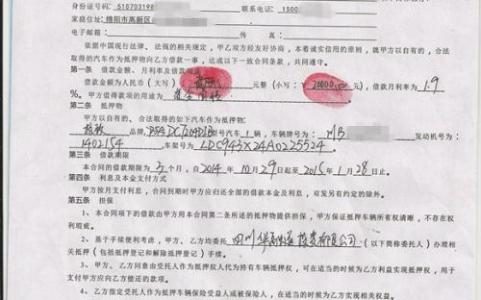 身份证号码：510703198 联系电话：1500
家庭住址：绵阳市高新区
电子邮箱： 传真：
依据中国现行法律、法规的相关规定，甲乙双方经友好协商，本着诚实信用的原则，就甲方以自有的、合法
取得的汽车作为抵押物向乙方借款一事，达成以下一致合同条款，共同遵守。
第一条 借款金额、月利率及借款用途
借款金额为人民币（大写） 元整（小写： ），借款月利率为1.9
%。甲方借得款项的用途为
第二条 抵押物
甲方以自有的、合法取得的如下汽车作为抵押物：
品牌， 型号汽车1辆，车辆牌号为：川B 发动机号为：
1402154 车架号为 LDC943X24A0225524
第三条 借款期限
本合同的借款期限为3个月，自2014年10月29日起至2015年1月28日止。
第四条 利息及本金支付方式
甲方按月支付利息，合同到期时甲方应归还全部的借款本金及利息，双发另有约定的除外。
第五条 担保
1、本合同项下的借款由甲方用本合同第二条所述的抵押物提供担保，甲方保证抵押车辆所有权清晰，不存在权
利瑕疵。
2、基于手续便利考虑，甲方、乙方均委托 四川 投资有限公司（以下简称委托人）办理相
关抵押（包括抵押登记和解除抵押登记）手续。
3、甲方、乙方同意由受托人作为抵押权人代为持有车辆抵押权，可在适当的时候为乙方利益实现抵押权，用于
支付甲方应向乙方偿还的款项。
4、乙方指定受托人作为抵押车辆保险受益人或被保险人，在适当的时候为乙方利益实现相关权利。